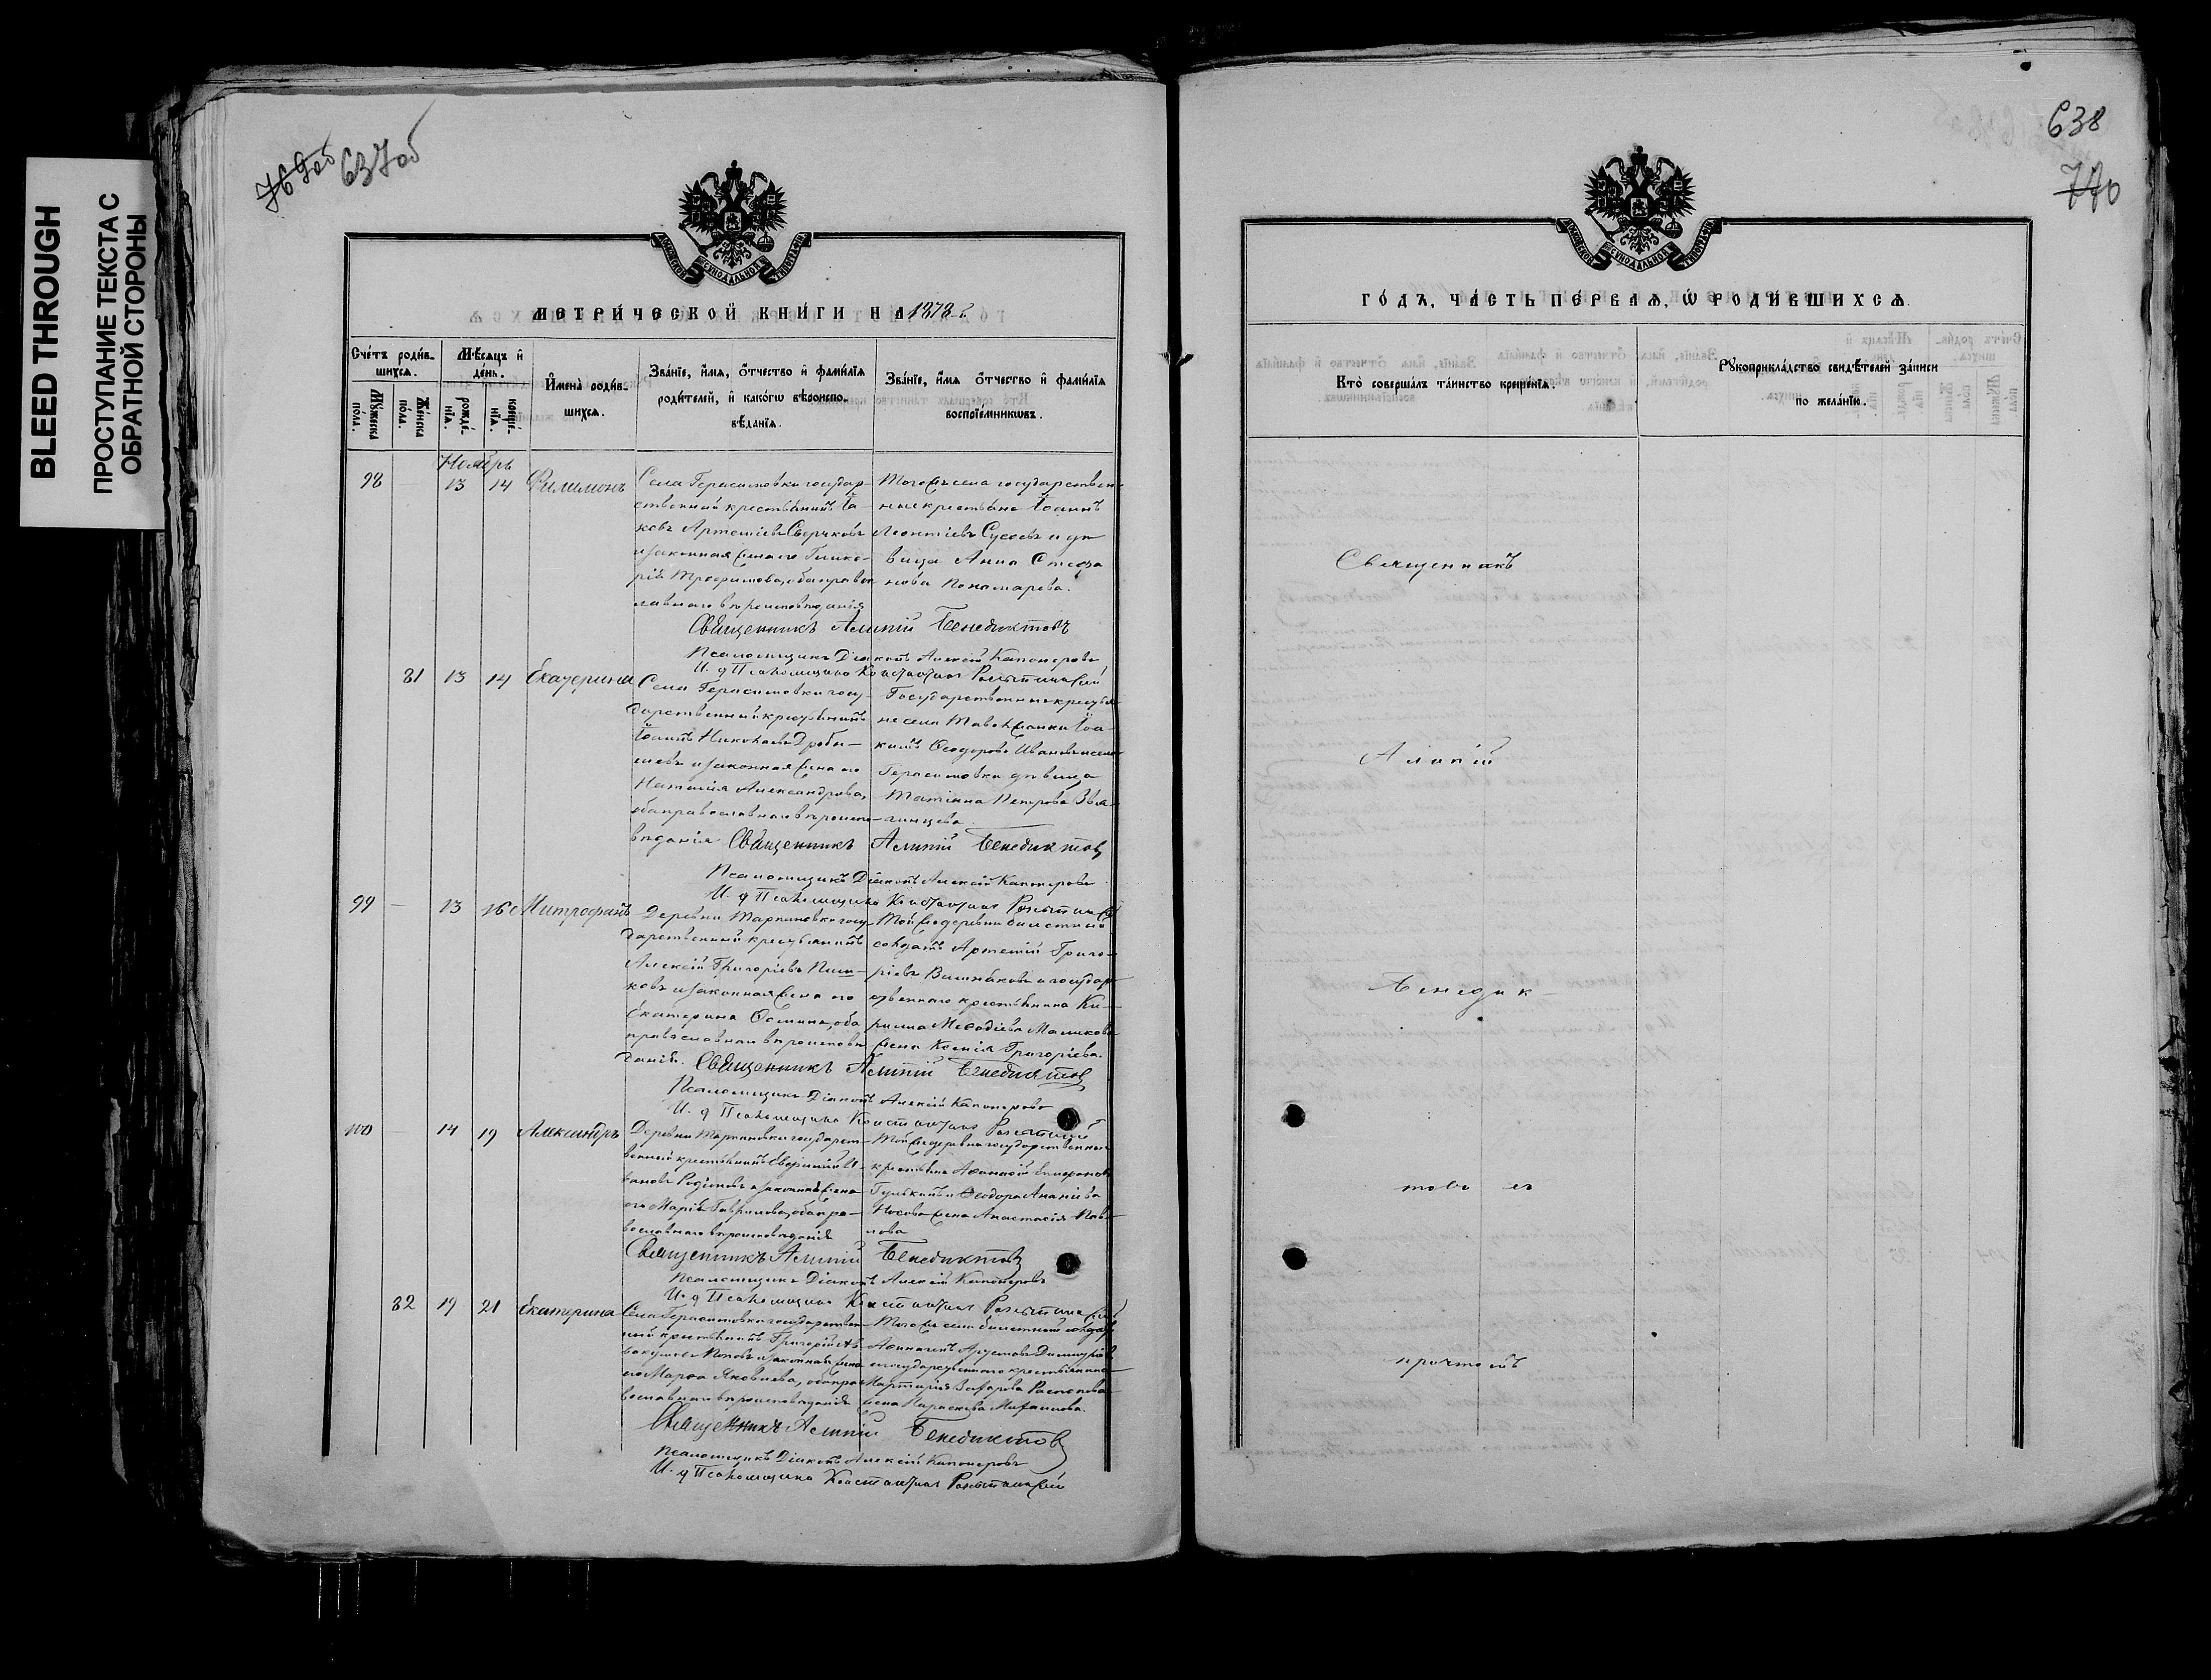 BLEED THROUGH
ПРОСТУПАНИЕ ТЕКСТА С
ОБРАТНОЙ СТОРОНЫ
769об 637об
МОСКОВСКОЙ СѴНОДАЛЬНОЙ ТИПОГРАФІИ
МЕТРИ́ЧЕСКОЙ КНИ́ГИ НА 1878-й
Сче́тъ роди́в-
шихсѧ.
Мѣ́сѧцъ и҆
де́нь.
Мꙋ́жеска
пола.
Же́нска
пола.
рожде́-
нїѧ.
креще́-
нїѧ.
И҆мена̀ роди́в-
шихсѧ.
Зва́нїе, и҆́мѧ, ѻ҆́тчество и҆ фамѝлїѧ
роди́телей, и҆ како́гѡ вѣроиспо-
вѣ́данїѧ.
Зва́нїе, и҆́мѧ ѻ҆́тчество и҆ фамѝлїѧ
воспрїе́мникѡвъ.
Ноябрь
98 — 13 14 Филимонъ
Села Герасимовки государ-
ственный крестьянинъ Іа-
ковъ Артеміевъ Сверчковъ
и законная жена его Глике-
рія Трофимова, оба право-
славнаго вѣроисповѣданія
Того же села государствен-
ные крестьяне Іоаннъ
Леонтіевъ Сусоевъ и дѣ-
вица Анна Стефа
нова Пономарева.
Священникъ Алипій Бенедиктовъ
Псаломщикъ Діаконъ Алексій Капонеровъ
И. д Псаломщика Константинъ
81 13 14 Екатерина
Села Герасимовки госу-
дарственный крестьянинъ
Іоаннъ Николаевъ Дробы-
шевъ и законная жена его
Наталія Александрова,
оба православнаго вѣроиспо-
вѣданія
Государственные крестья-
не села Таволжанки Іоа-
кимъ Ѳеодоровъ Ивановъ и села
Герасимовки дѣвица
Татіана Петрова Звя-
гинцева.
Священникъ Алипій Бенедиктовъ
Псаломщикъ Діаконъ Алексій Капонеровъ
И. д Псаломщика Константинъ
99 — 13 16 Митрофанъ
Деревни Марьиновки госу-
дарственный крестьянинъ
Алексій Григорьевъ
ковъ и законная жена его
Екатерина Ѳомина, оба
православнаго вѣроисповѣ
данія.
Той же деревни билетный
солдатъ Артемій Григо-
ріевъ Вишняковъ и государ-
ственнаго крестьянина Ки-
рилла Меѳодіева Маликова
жена Ксенія Григоріева.
Священникъ Алипій Бенедиктовъ
Псаломщикъ Діаконъ Алексій Капонеровъ
И. д Псаломщика Константинъ
100 — 14 19 Александръ
Деревни Марьиновки государст-
венный крестьянинъ И-
вановъ Родіоновъ и законная жена
его Марія Гаврилова, оба пра-
вославнаго вѣроисповѣданія
Той же деревни государственные
крестьяне Аѳанасій
и Ѳеодора Ананіева
Носова жена Анастасія Пав-
лова
Священникъ Алипій Бенедиктовъ
Псаломщикъ Діаконъ Алексій Капонеровъ
И. д Псаломщика Константинъ
82 19 21 Екатерина
Села Герасимовки государствен-
ный крестьянинъ Григорій Ав-
вакумовъ Поповъ и законная жена
его Марѳа Яковлева, оба пра-
вославнаго вѣроисповѣданія
Того же села билетный солдатъ
и государственнаго крестьянина
Мартирія Захарова
жена Параскева Михаилова.
Священникъ Алипій Бенедиктовъ
Псаломщикъ Діаконъ Алексій Капонеровъ
И. д Псаломщика Константинъ
638
770
МОСКОВСКОЙ СѴНОДАЛЬНОЙ ТИПОГРАФІИ
ГО́ДЪ, ЧА́СТЬ ПЕ́РВАѦ, Ѡ҆ РОДИ́ВШИХСѦ.
Кто̀ соверша́лъ та́инство креще́нїѧ.
Рꙋкоприкла́дство свидѣ́телей за́писи
по жела́нїю.
Священникъ
Алипій
Бенедик-
товъ съ
причтомъ